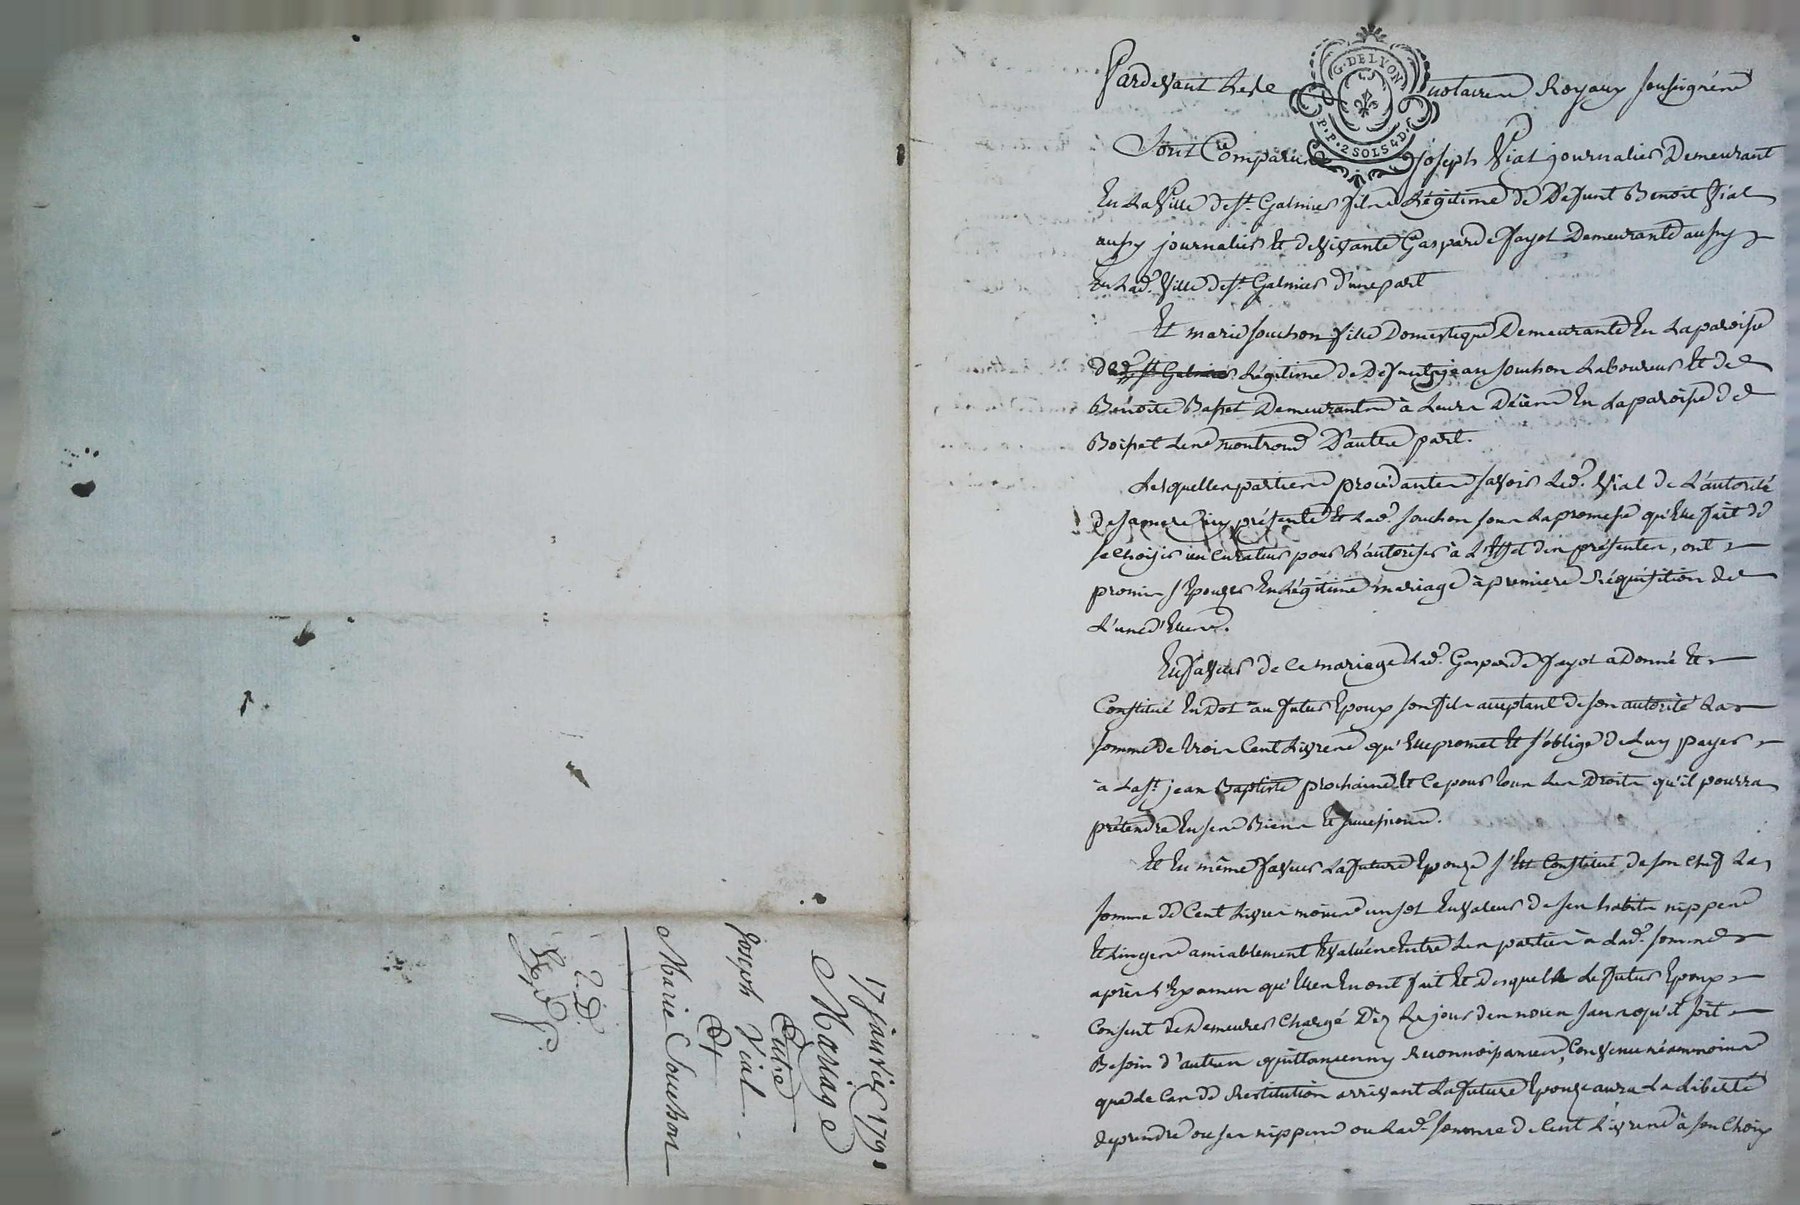 17 janvier 1790
Mariage
Entre
Joseph Vial
Et
Marie Souchon
2. D.
G. DE LYON
P. P. 2 SOLS 4 D.
Pardevant Les notaires Royaux soussignés
Sont Comparus Joseph Vial journalier Demeurant
En La Ville de St. Galmier fils Légitime de Défunt Benoit Vial
aussy journalier Et de vivante Gasparde Fayol Demeurante aussy
En Lad. Ville de St. Galmier d'une part
Et marie souchon fille Domestique Demeurante En La paroisse
de St Galmier Légitime de Defunt jean souchon Laboureur Et de
Benoite Basset Demeurants à Leurs Décès En La paroisse de
Boisset Les montrond D'autre part.
Lesquelles parties procédantes savoir Led. Vial de L'autorité
de sa mere icy présente Et Lad. souchon sous La promesse qu'Elle fait de
se choisir un curateur pour L'autoriser à L'Effet des présentes, ont
promis s'Epouser En Légitime mariage à premiere Réquisition de
L'une d'Elles.
En faveur de Ce mariage Lad. Gasparde Fayol a Donné Et
Constitué En Dot au futur Epoux son fils acceptant de son autorité La
somme de trois Cent Livres qu'Elle promet Et s'oblige de Luy payer
à La St. jean Baptiste prochaine Et Ce pour tous Les Droits qu'il pourra
prétendre En ses Biens Et successions.
Et En même faveur La future Epouse s'Est Constitué de son chef La
somme de Cent Livres moins un sol En valeur de ses habits nippes
Et linges amiablement Evalués Entre Les parties à Lad. somme
après L'Examen qu'Elles En ont fait Et Desquels Le futur Epoux
Consent de Demeurer Chargé Dès Le jour des noces sans qu'il soit
Besoin d'autres quittances ny Reconnoissances, Convenu néanmoins
que Le Cas de Restitution arrivant La future Epouse aura La Liberté
de prendre ou ses nippes ou Lad. somme de Cent Livres à son Choix